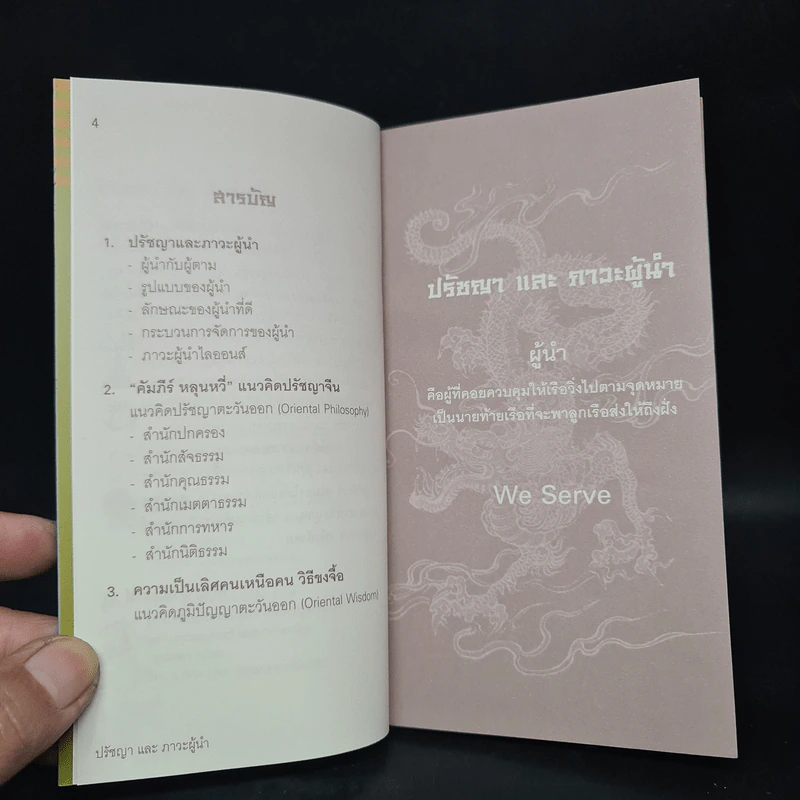 4
สารบัญ
1. ปรัชญาและภาวะผู้นำ
- ผู้นำกับผู้ตาม
- รูปแบบของผู้นำ
- ลักษณะของผู้นำที่ดี
- กระบวนการจัดการของผู้นำ
- ภาวะผู้นำไลออนส์
2. "คัมภีร์ หลุนหวี่" แนวคิดปรัชญาจีน
แนวคิดปรัชญาตะวันออก (Oriental Philosophy)
- สำนักปกครอง
- สำนักสัจธรรม
- สำนักคุณธรรม
- สำนักเมตตาธรรม
- สำนักการทหาร
- สำนักนิติธรรม
3. ความเป็นเลิศคนเหนือคน วิธีขงจื้อ
แนวคิดภูมิปัญญาตะวันออก (Oriental Wisdom)
ปรัชญา และ ภาวะผู้นำ
ปรัชญา และ ภาวะผู้นำ
ผู้นำ
คือผู้ที่คอยควบคุมให้เรือวิ่งไปตามจุดหมาย
เป็นนายท้ายเรือที่จะพาลูกเรือส่งให้ถึงฝั่ง
We Serve